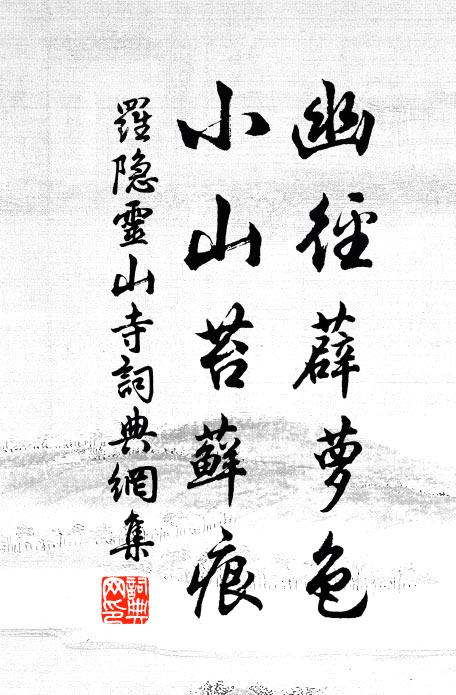 幽徑薜萝色
小山苔蘚痕
羅隐靈山寺詞典網集
詞典网印